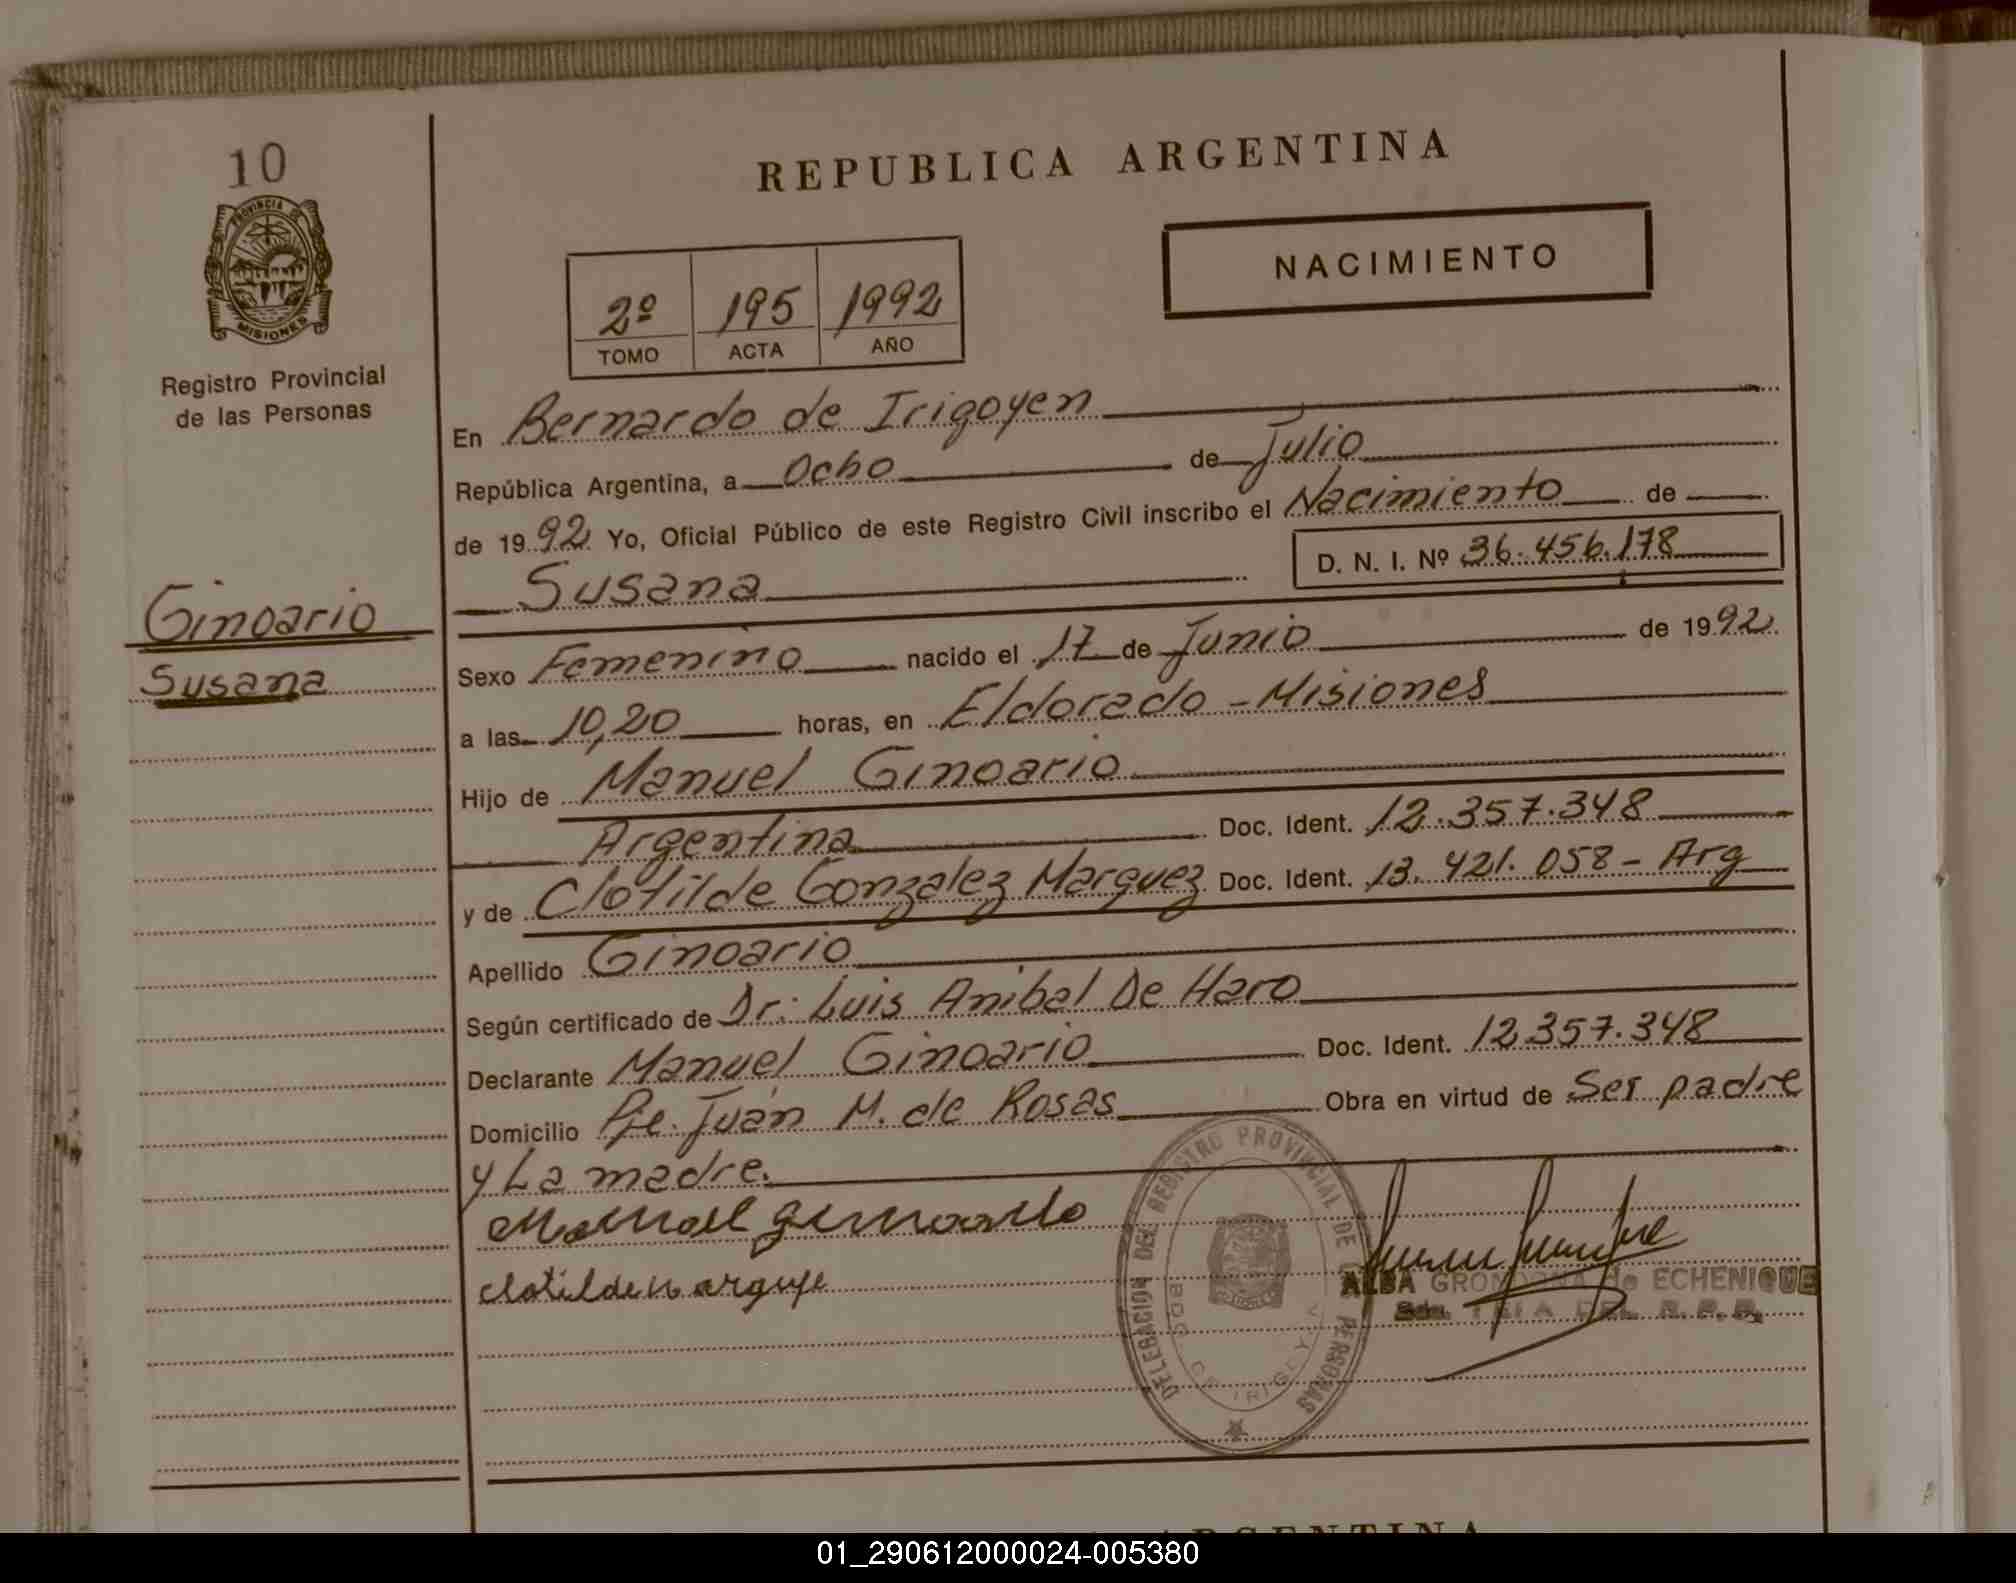 10
PROVINCIA DE
MISIONES
Registro Provincial
de las Personas
Ginoario
Susana
REPUBLICA ARGENTINA
NACIMIENTO
2º 195 1992
TOMO ACTA AÑO
En Bernardo de Irigoyen
República Argentina, a Ocho de Julio
de 1992 Yo, Oficial Público de este Registro Civil inscribo el Nacimiento de
Susana D. N. I. Nº 36.456.178
Sexo Femenino nacido el 17 de Junio de 1992
a las 10,20 horas, en Eldorado - Misiones
Hijo de Manuel Ginoario
Argentina Doc. Ident. 12.357.348
y de Clotilde Gonzalez Marquez Doc. Ident. 13.421.058 - Arg
Apellido Ginoario
Según certificado de Dr: Luis Anibal De Haro
Declarante Manuel Ginoario Doc. Ident. 12.357.348
Domicilio Pje. Juan M. de Rosas Obra en virtud de Ser padre
y La madre.
DELEGACION DEL REGISTRO PROVINCIAL DE PERSONAS
ALBA GRONDONA de ECHENIQUE
DEL R.P.P.
ARGENTINA
01_290612000024-005380